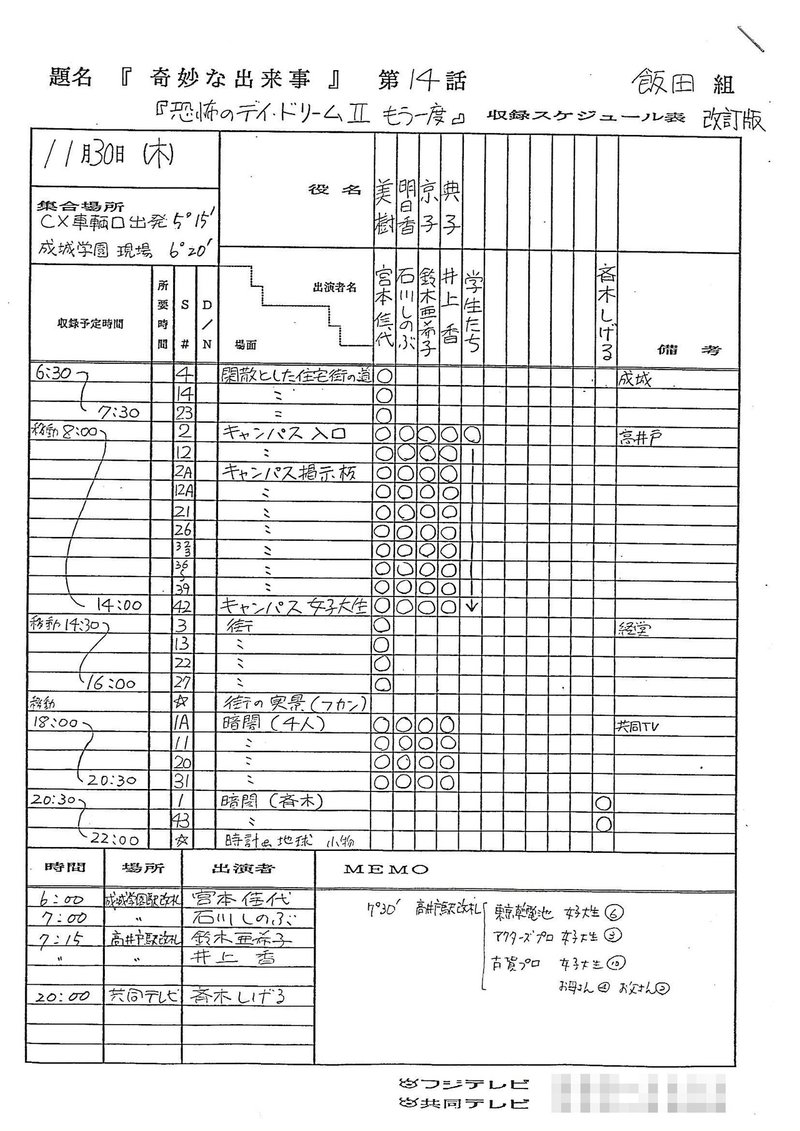 題名 『 奇妙な出来事 』 第14話 飯田 組
『恐怖のデイ・ドリームⅡ もう一度』 収録スケジュール表 改訂版
11月30日 (木)
集合場所
CX車輌口出発 5°15′
成城学園 現場 6°20′
役名 美樹 明日香 京子 典子
収録予定時間 所要時間 S# D/N 場面 出演者名 宮本佳代 石川しのぶ 鈴木亜希子 井上香 学生たち 斉木しげる 備考
6:30 4 閑散とした住宅街の道 ○ 成城
14 〃 ○
7:30 23 〃 ○
移動 8:00 2 キャンパス 入口 ○ ○ ○ ○ ○ 高井戸
12 〃 ○ ○ ○ ○
2A キャンパス掲示板 ○ ○ ○ ○
12A 〃 ○ ○ ○ ○
21 〃 ○ ○ ○ ○
26 〃 ○ ○ ○ ○
〃 ○ ○ ○ ○
〃 ○ ○ ○ ○
39 〃 ○ ○ ○ ○
14:00 42 キャンパス 女子大生 ○ ○ ○ ○ ↓
移動 14:30 3 街 ○ 経堂
13 〃 ○
22 〃 ○
16:00 27 〃 ○
移動 ☆ 街の実景(フカン)
18:00 1A 暗闇(4人) ○ ○ ○ ○ 共同TV
11 〃 ○ ○ ○ ○
20 〃 ○ ○ ○ ○
20:30 31 〃 ○ ○ ○ ○
20:30 1 暗闇(斉木) ○
43 〃 ○
22:00 ☆ 時計 地球 小物
時間 場所 出演者 MEMO
6:00 成城学園駅改札 宮本佳代
7:00 〃 石川しのぶ
7:15 高井戸駅改札 鈴木亜希子
〃 〃 井上 香
20:00 共同テレビ 斉木しげる
7°30′ 高井戸駅改札 東京乾電池 女子大生⑥
アクターズプロ 女子大生③
古賀プロ 女子大生⑩
お母さん④ お父さん②
フジテレビ
共同テレビ